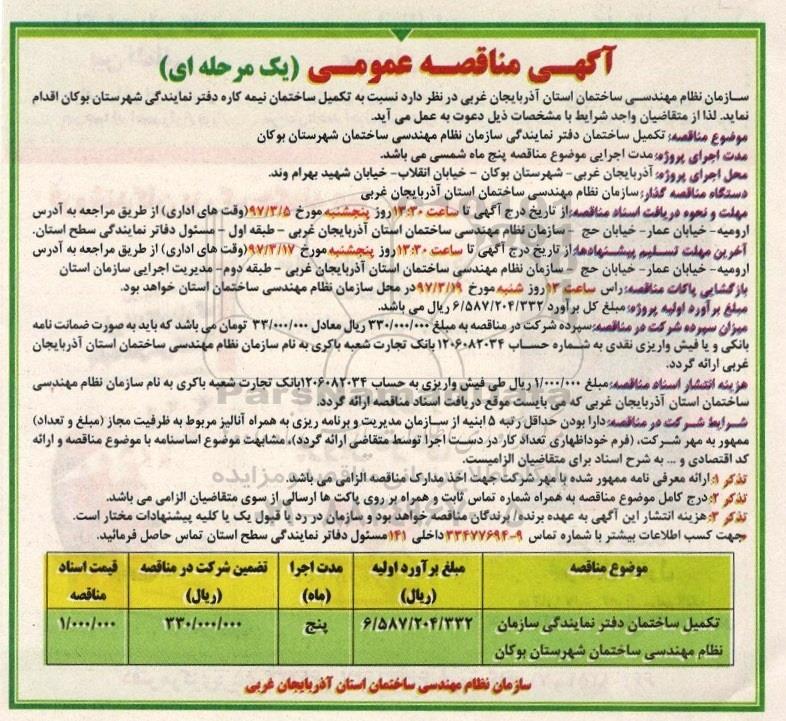 آگهی مناقصه عمومی (یک مرحله ای)
سازمان نظام مهندسی ساختمان استان آذربایجان غربی در نظر دارد نسبت به تکمیل ساختمان نیمه کاره دفتر نمایندگی شهرستان بوکان اقدام
نماید. لذا از متقاضیان واجد شرایط با مشخصات ذیل دعوت به عمل می آید.
موضوع مناقصه: تکمیل ساختمان دفتر نمایندگی سازمان نظام مهندسی ساختمان شهرستان بوکان
مدت اجرای پروژه: مدت اجرایی موضوع مناقصه پنج ماه شمسی می باشد.
محل اجرای پروژه: آذربایجان غربی- شهرستان بوکان - خیابان انقلاب- خیابان شهید بهرام وند.
دستگاه مناقصه گذار: سازمان نظام مهندسی ساختمان استان آذربایجان غربی
مهلت و نحوه دریافت اسناد مناقصه: از تاریخ درج آگهی تا ساعت ۱۳:۳۰ روز پنجشنبه مورخ ۹۷/۳/۵ (وقت های اداری) از طریق مراجعه به آدرس
ارومیه- خیابان عمار- خیابان حج - سازمان نظام مهندسی ساختمان استان آذربایجان غربی - طبقه اول - مسئول دفاتر نمایندگی سطح استان.
آخرین مهلت تسلیم پیشنهادها: از تاریخ درج آگهی تا ساعت ۱۳:۳۰ روز پنجشنبه مورخ ۹۷/۳/۱۷ (وقت های اداری) از طریق مراجعه به آدرس
ارومیه- خیابان عمار- خیابان حج - سازمان نظام مهندسی ساختمان استان آذربایجان غربی - طبقه دوم- مدیریت اجرایی سازمان استان
بازگشایی پاکات مناقصه: راس ساعت ۱۳ روز شنبه مورخ ۹۷/۳/۱۹ در محل سازمان نظام مهندسی ساختمان استان خواهد بود.
مبلغ برآورد اولیه پروژه: مبلغ کل برآورد ۶/۵۸۷/۲۰۴/۳۳۲ ریال می باشد.
میزان سپرده شرکت در مناقصه: سپرده شرکت در مناقصه به مبلغ ۳۳۰/۰۰۰/۰۰۰ ریال معادل ۳۳/۰۰۰/۰۰۰ تومان می باشد که باید به صورت ضمانت نامه
بانکی و یا فیش واریزی نقدی به شماره حساب ۱۲۰۶۰۸۲۰۳۴ بانک تجارت شعبه باکری به نام سازمان نظام مهندسی ساختمان استان آذربایجان
غربی ارائه گردد.
هزینه انتشار اسناد مناقصه: مبلغ ۱/۰۰۰/۰۰۰ ریال طی فیش واریزی به حساب ۱۲۰۶۰۸۲۰۳۴ بانک تجارت شعبه باکری به نام سازمان نظام مهندسی
ساختمان استان آذربایجان غربی که می بایست موقع دریافت اسناد مناقصه ارائه گردد.
شرایط شرکت در مناقصه: دارا بودن حداقل رتبه ۵ ابنیه از سازمان مدیریت و برنامه ریزی به همراه آنالیز مربوط به ظرفیت مجاز (مبلغ و تعداد)
ممهور به مهر شرکت، (فرم خوداظهاری تعداد کار در دست اجرا توسط متقاضی ارائه گردد)، مشابهت موضوع اساسنامه با موضوع مناقصه و ارائه
کد اقتصادی و ... به شرح اسناد برای متقاضیان الزامیست.
تذکر ۱: ارائه معرفی نامه ممهور شده با مهر شرکت جهت اخذ مدارک مناقصه الزامی می باشد.
تذکر ۲: درج کامل موضوع مناقصه به همراه شماره تماس ثابت و همراه بر روی پاکت ها ارسالی از سوی متقاضیان الزامی می باشد.
تذکر ۳: هزینه انتشار این آگهی به عهده برنده/ برندگان مناقصه خواهد بود و سازمان در رد یا قبول یک یا کلیه پیشنهادات مختار است.
جهت کسب اطلاعات بیشتر با شماره تماس ۹-۳۳۴۷۷۶۹۴ داخلی ۱۴۱ مسئول دفاتر نمایندگی سطح استان تماس حاصل فرمائید.
موضوع مناقصه مبلغ برآورد اولیه (ریال) مدت اجرا (ماه) تضمین شرکت در مناقصه (ریال) قیمت اسناد مناقصه
تکمیل ساختمان دفتر نمایندگی سازمان نظام مهندسی ساختمان شهرستان بوکان ۶/۵۸۷/۲۰۴/۳۳۲ پنج ۳۳۰/۰۰۰/۰۰۰ ۱/۰۰۰/۰۰۰
سازمان نظام مهندسی ساختمان استان آذربایجان غربی